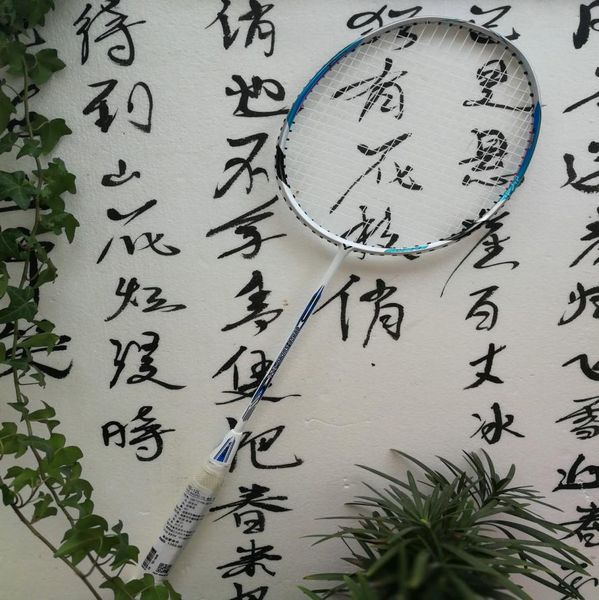 风雨送春归飞雪迎春
已是悬崖百丈冰
犹有花枝俏
俏也不争春只把春来报
待到山花烂漫时